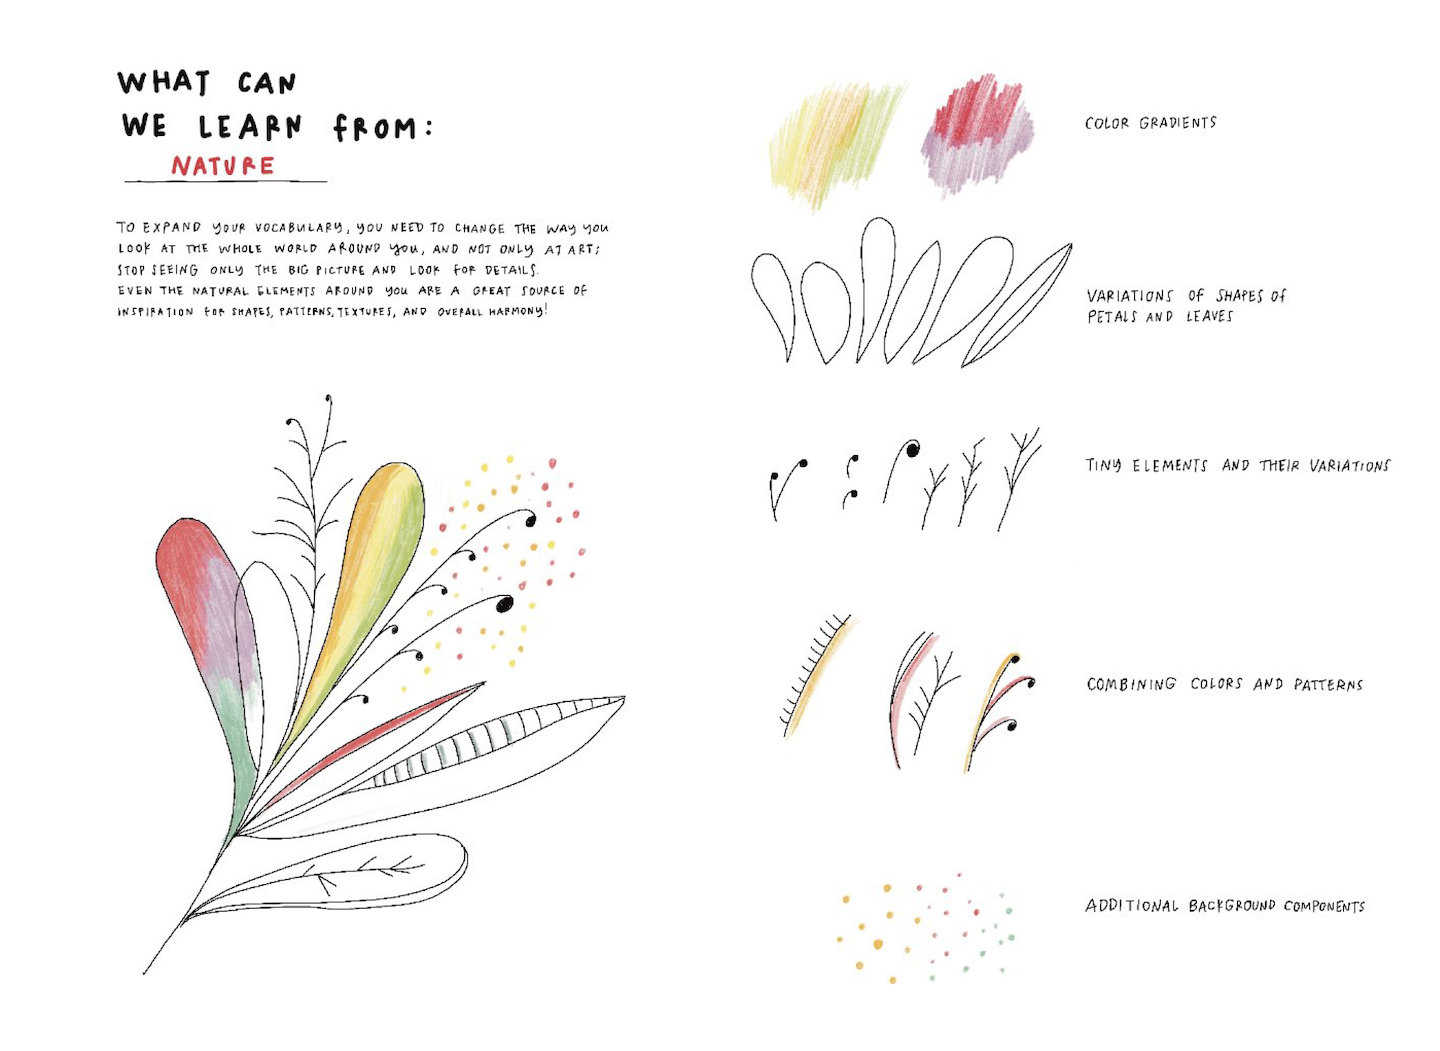 WHAT CAN
WE LEARN FROM:
NATURE
TO EXPAND YOUR VOCABULARY, YOU NEED TO CHANGE THE WAY YOU
LOOK AT THE WHOLE WORLD AROUND YOU, AND NOT ONLY AT ART;
STOP SEEING ONLY THE BIG PICTURE AND LOOK FOR DETAILS.
EVEN THE NATURAL ELEMENTS AROUND YOU ARE A GREAT SOURCE OF
INSPIRATION FOR SHAPES, PATTERNS, TEXTURES, AND OVERALL HARMONY!
COLOR GRADIENTS
VARIATIONS OF SHAPES OF
PETALS AND LEAVES
TINY ELEMENTS AND THEIR VARIATIONS
COMBINING COLORS AND PATTERNS
ADDITIONAL BACKGROUND COMPONENTS